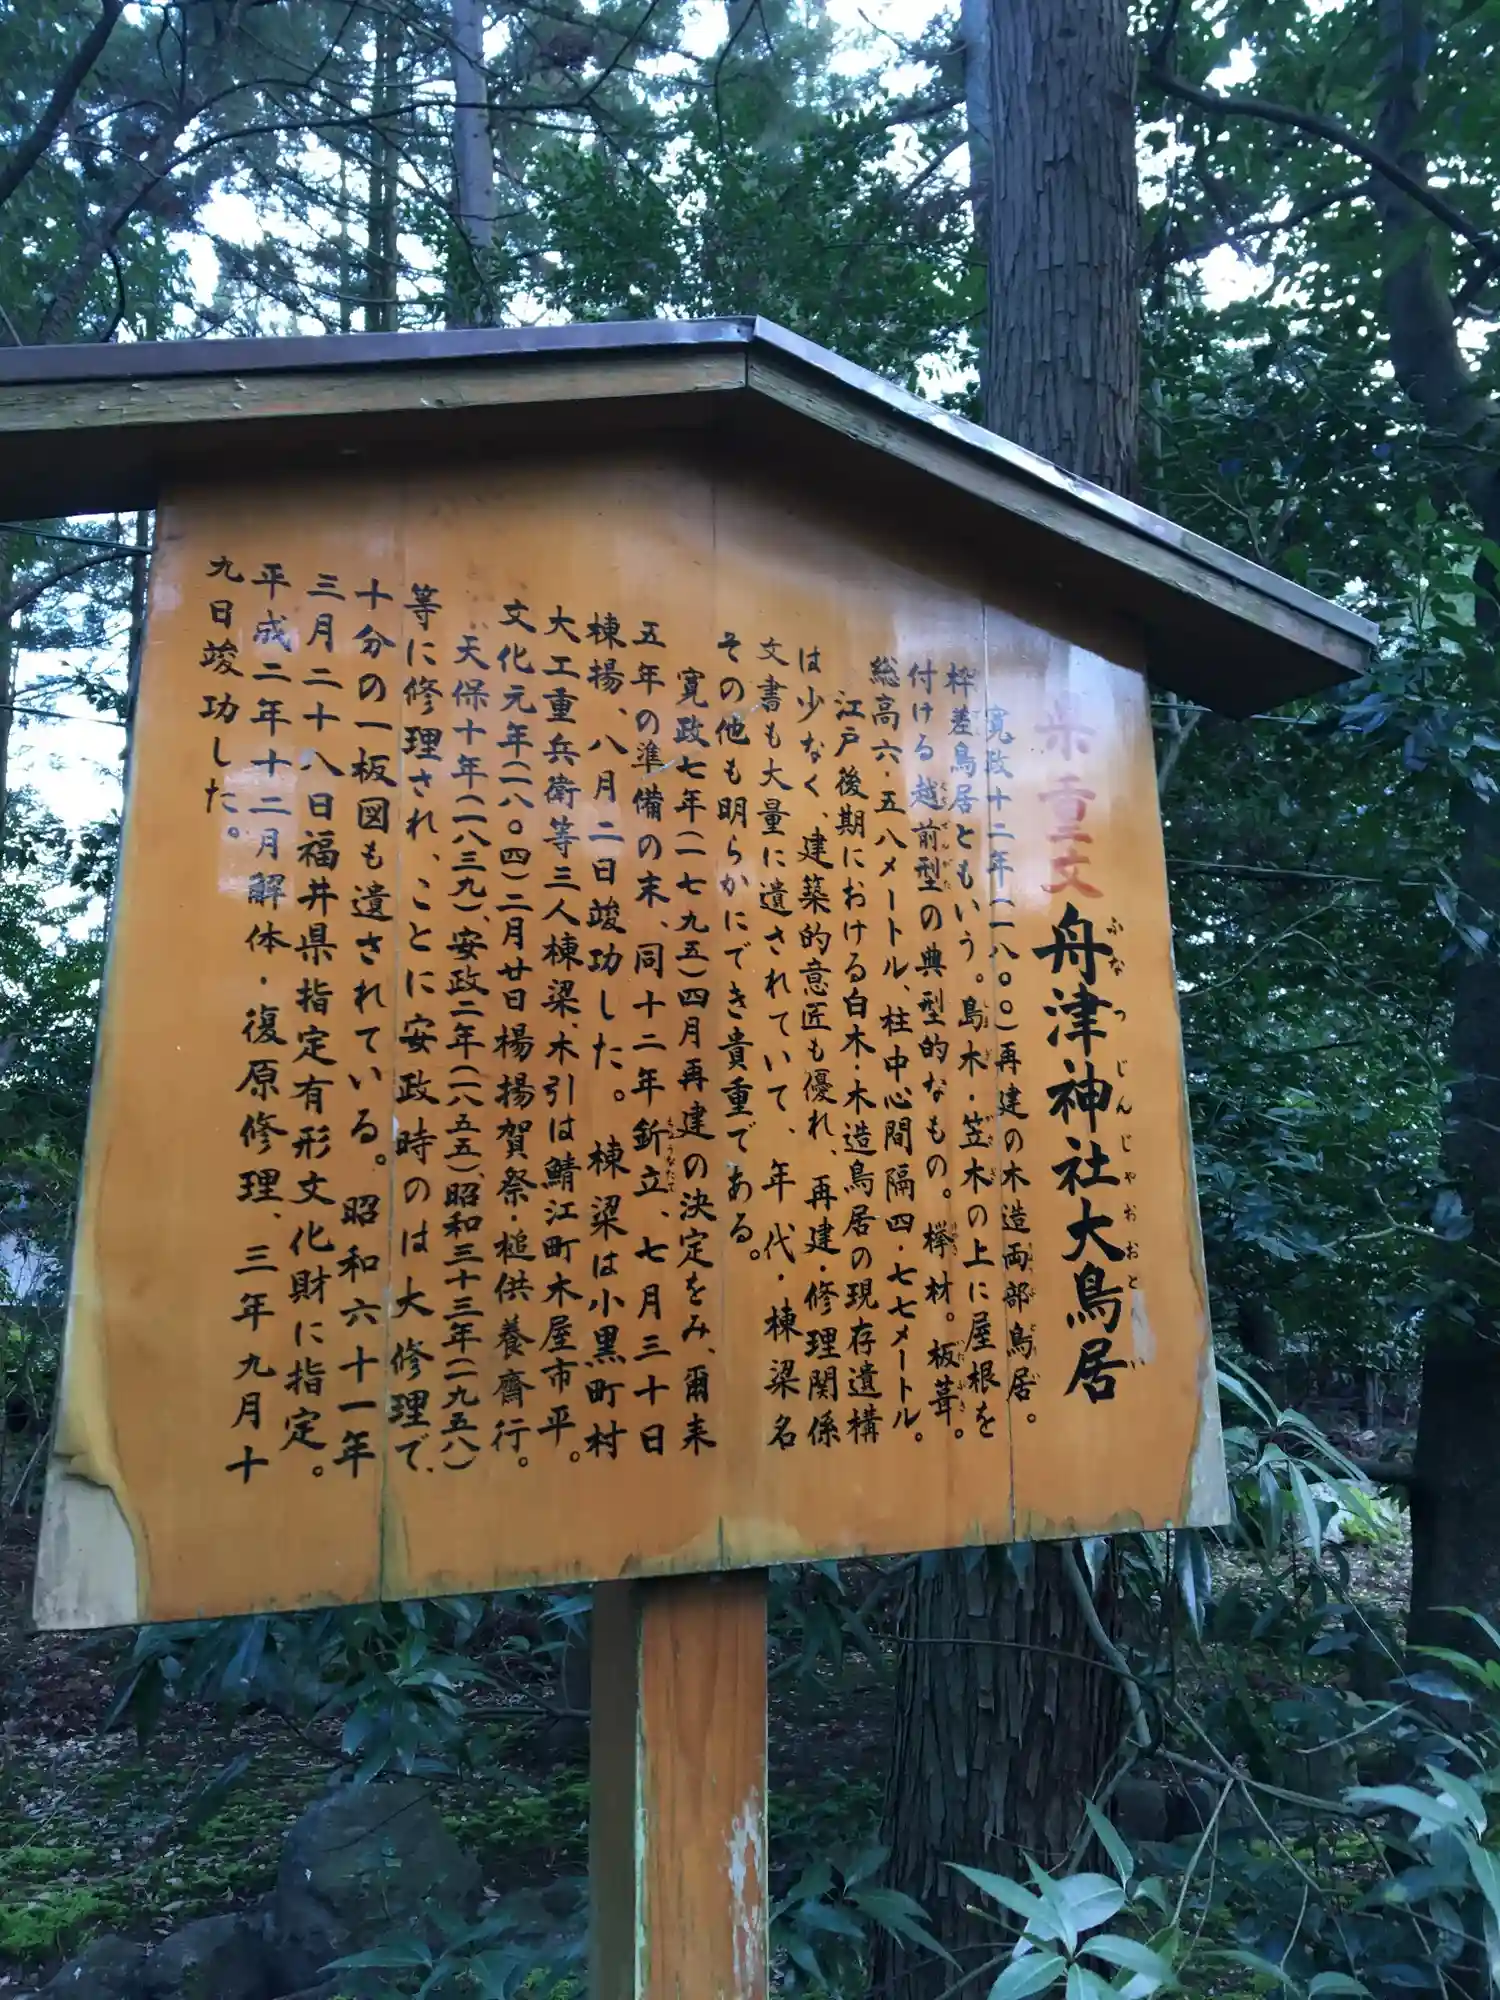 県重文 舟津神社大鳥居
ふなつじんじゃおおとりい
寛政十二年(一八〇〇)再建の木造両部鳥居。
枠差鳥居ともいう。島木・笠木の上に屋根を
付ける越前型の典型的なもの。欅材。板葺。
総高六・五八メートル、柱中心間隔四・七七メートル。
江戸後期における白木・木造鳥居の現存遺構
は少なく、建築的意匠も優れ、再建・修理関係
文書も大量に遺されていて、年代・棟梁名
その他も明らかにでき貴重である。
寛政七年(一七九五)四月再建の決定をみ、爾来
五年の準備の末、同十二年釿立、七月三十日
棟揚、八月二日竣功した。棟梁は小黒町村
大工重兵衛等三人棟梁、木引は鯖江町木屋市平。
文化元年(一八〇四)二月廿日楊揚賀祭・槌供養齋行。
天保十年(一八三九)、安政二年(一八五五)、昭和三十三年(一九五八)
等に修理され、ことに安政時のは大修理で、
十分の一板図も遺されている。昭和六十一年
三月二十八日福井県指定有形文化財に指定。
平成二年十二月解体・復原修理、三年九月十
九日竣功した。